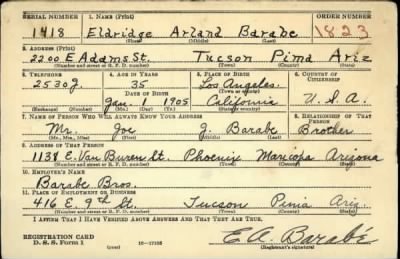 SERIAL NUMBER 1. NAME (Print) ORDER NUMBER
1418 Eldridge Arland Barabe 1823
(First) (Middle) (Last)
2. ADDRESS (Print)
2200 E Adams St. Tucson Pima Ariz
(Number and street or R. F. D. number) (Town) (County) (State)
3. TELEPHONE 4. AGE IN YEARS 5. PLACE OF BIRTH 6. COUNTRY OF CITIZENSHIP
2530J 35 Los Angeles
DATE OF BIRTH (Town or county)
Jan. 1 1905 California U.S.A.
(Exchange) (Number) (Mo.) (Day) (Yr.) (State or country)
7. NAME OF PERSON WHO WILL ALWAYS KNOW YOUR ADDRESS 8. RELATIONSHIP OF THAT PERSON
Mr. Joe J. Barabe Brother
(Mr., Mrs., Miss) (First) (Middle) (Last)
9. ADDRESS OF THAT PERSON
1138 E. Van Buren St. Phoenix Maricopa Arizona
(Number and street or R. F. D. number) (Town) (County) (State)
10. EMPLOYER'S NAME
Barabe Bros.
11. PLACE OF EMPLOYMENT OR BUSINESS
416 E. 9th St. Tucson Pima Ariz.
(Number and street or R. F. D. number) (Town) (County) (State)
I AFFIRM THAT I HAVE VERIFIED ABOVE ANSWERS AND THAT THEY ARE TRUE.
REGISTRATION CARD
D. S. S. Form 1 (over) 16—17105 E. A. Barabé
(Registrant's signature)